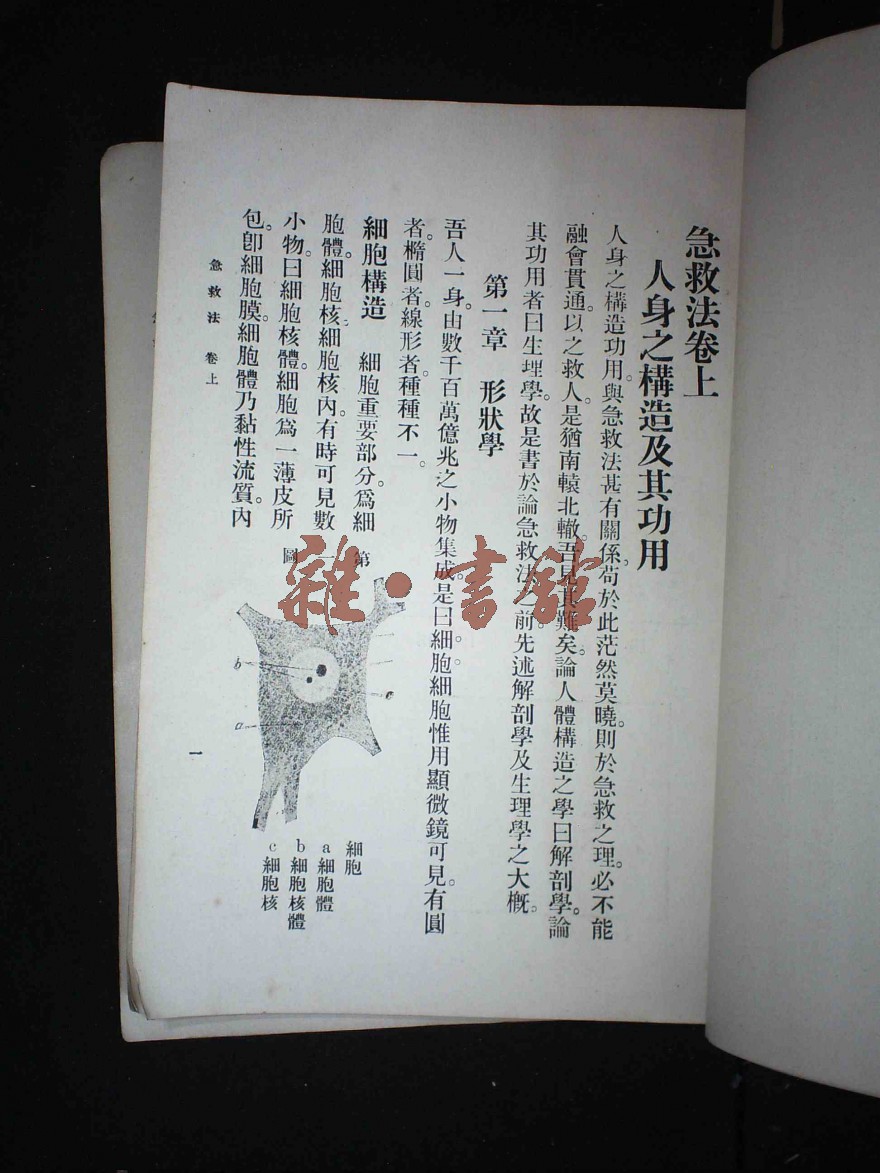 急救法卷上
人身之構造及其功用
人身之構造功用。與急救法甚有關係。苟於此茫然莫曉。則於急救之理。必不能
融會貫通。以之救人。是猶南轅北轍。吾見其難矣。論人體構造之學曰解剖學。論
其功用者曰生理學。故是書於論急救法之前。先述解剖學及生理學之大概。
第一章 形狀學
吾人一身。由數千百萬億兆之小物集成。是曰細胞。細胞惟用顯微鏡可見。有圓
者。橢圓者。線形者。種種不一。
細胞構造 細胞重要部分。爲細
胞體。細胞核。細胞核內。有時可見數
小物。曰細胞核體。細胞爲一薄皮所
包。卽細胞膜。細胞體乃黏性流質。內
第一圖
b
a
c
細胞
a 細胞體
b 細胞核體
c 細胞核
急救法 卷上
一
雜·書館